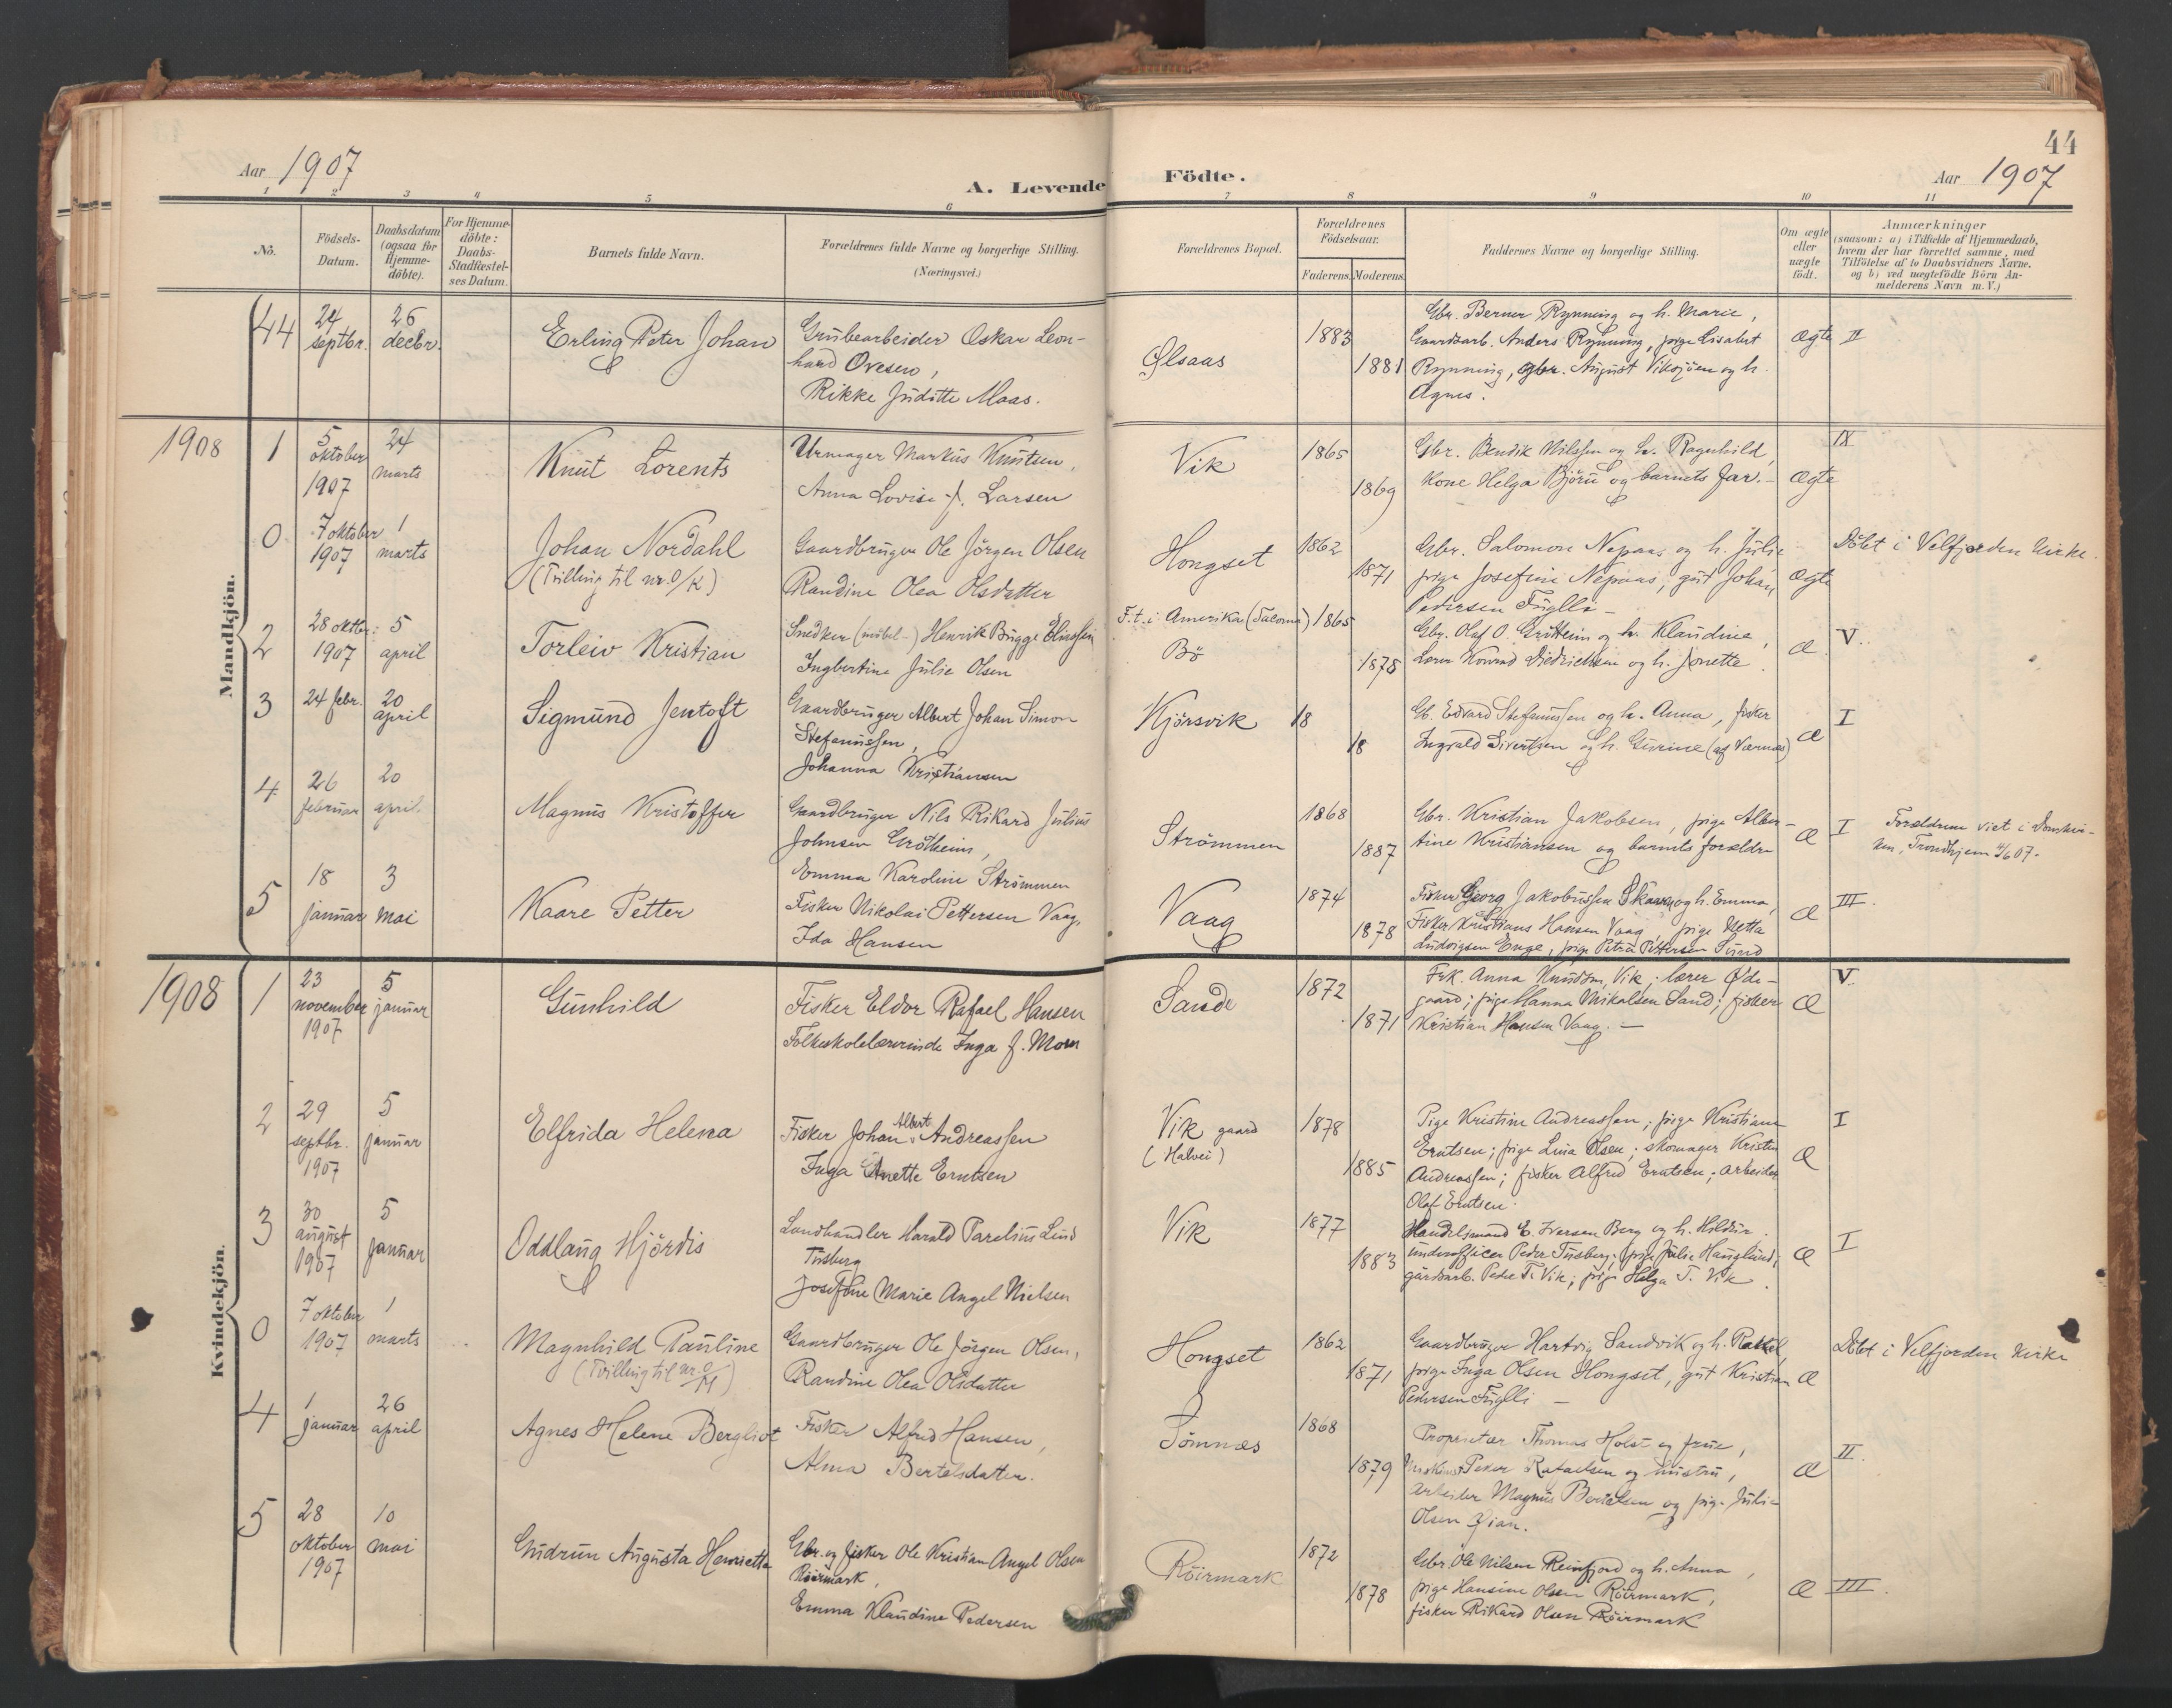 44
Aar 1907
A. Levende Födte.
Aar 1907
1 2 3 4 5 6 7 8 9 10 11
No.
Födsels-Datum.
Daabsdatum (ogsaa for Hjemme-döbte).
For Hjemme-döbte: Daabs-Stadfæstel-ses Datum.
Barnets fulde Navn.
Forældrenes fulde Navne og borgerlige Stilling.
(Næringsvei.)
Forældrenes Bopæl.
Forældrenes Födselsaar.
Faderens. Moderens.
Faddernes Navne og borgerlige Stilling.
Om ægte eller uægte födt.
Anmærkninger
(saasom: a) i Tilfælde af Hjemmedaab,
hvem der har forrettet samme, med
Tilföielse af to Daabsvidners Navne.
og b) ved uægtefödte Börn An-
melderens Navn m. V.)
Mandkjön.
44
24 septbr.
26 decbr.
Erling Peter Johan
Grubearbeider Oskar Leon-
hard Ovesen,
Rikke Juditte Maas.
Ølsaas
1883
1881
Gbr. Berner Rynning og h. Marie,
Gaardsarb. Anders Rynning, pige Lisabet
Rynning, gbr. August Viksjöen og h.
Agnes.
Ægte
II
1908
1
5 oktober 1907
24 marts
Knut Lorents
Urmager Markus Knutsen,
Anna Lovise J. Larsen
Vik
1865
1869
Gbr. Bendik Nilssen og h. Ragnhild,
Kone Helga Björu og barnets far.
Ægte
IX
0
7 oktober 1907
1 marts
Johan Nordahl
(Tvilling til nr. 0/K)
Gaardbruger Ole Jörgen Olsen
Randine Olea Olsdatter
Hongset
1862
1871
Gbr. Salomon Nepaas og h. Julie
pige Josefine Nepaas, gut Johan
Pedersen Fuglli –
Ægte
Döbt i Velfjorden Kirke.
2
28 oktbr. 1907
5 april
Torleiv Kristian
Snedker (möbel-) Henrik Bugge Eliassen
Ingbertine Julie Olsen
F.t. i Amerika (Tacoma)
Bö
1865
1878
Gbr. Olaf O. Grötheim og h. Klaudine,
Lærer Konrad Diedrichsen og h. Jonette.
Æ
V.
3
24 febr.
20 april
Sigmund Jentoft
Gaardbruger Albert Johan Simon
Stefanussen,
Johanna Kristiansen
Kjörsvik
18
18
Gb. Edvard Stefanussen og h. Anna, fisker
Ingvald Sivertsen og h. Gurine (af Værnæs)
Æ
I
4
26 februar
20 april.
Magnus Kristoffer
Gaardbruger Nils Rikard Julius
Johnsen Grötheim,
Emma Karoline Strömmen
Strömmen
1868
1887
Gbr. Kristian Jakobsen, pige Alber-
tine Kristiansen og barnets forældre
Æ
I
Forældrene viet i Domkir-
ken, Trondhjem 4/6 07.
5
18 januar
3 mai
Kaare Petter
Fisker Nikolai Pettersen Vaag,
Ida Hansen
Vaag
1874
1878
Fisker Georg Jakobussen Skaaren og h. Emma,
Fisker Kristians Hansen Vaag, pige Netta
Ludvigsen Enge, pige Petra Pettersen Sund
Æ
III.
Kvindekjön.
1908
1
23 november 1907
5 januar
Gunhild
Fisker Eldor Rafael Hansen
Folkeskolelærerinde Inga f. Moen
Sande
1872
1871
Frk. Anna Knudsen, Vik; lærer Øde-
gaard; pige Hanna Mikalsen Sand; fisker
Kristian Hansen Vaag. –
Æ
V.
2
29 septbr. 1907
5 januar
Elfrida Helena
Fisker Johan Albert Andreassen
Inga Anette Erntsen
Vik gaard
(Halvei)
1878
1885
Pige Kristine Andreassen; pige Kristiane
Erntsen; pige Lina Olsen; skomager Kristen
Andreassen; fisker Alfred Erntsen; arbeider
Olaf Erntsen.
Æ
I
3
30 august 1907
5 januar
Oddlaug Hjördis
Landhandler Harald Parelius Lind
Tusberg
Josefine Marie Angel Nielsen
Vik
1877
1883
Handelsmand E. Iversen Berg og h. Hildur.
underofficer Peder Tusberg; pige Julie Hauglund;
gårdsarb. Peder T. Vik; pige Helga T. Vik.
Æ
I
0
7 oktober 1907
1 marts
Magnhild Pauline
(Tvilling til nr. 0/M)
Gaardbruger Ole Jörgen Olsen,
Randine Olea Olsdatter
Hongset
1862
1871
Gaardbruger Hartvig Sandvik og h. Rakkel,
pige Inga Olsen Hongset, gut Kristian
Pedersen Fuglli –
Æ
Döbt i Velfjorden Kirke
4
1 januar
26 april
Agnes Helene Bergliot
Fisker Alfred Hansen,
Alma Bertelsdatter.
Sömnæs
1868
1879
Proprietær Thomas Holst og frue,
Peder Rafaelsen og hustru,
arbeider Magnus Bertelsen og pige Julie
Olsen
Æ
II.
5
28 oktober 1907
10 mai
Gudrun Augusta Henriette
Gbr. og fisker Ole Kristian Angel Olsen
Röirmark,
Emma Klaudine Pedersen
Röirmark
1872
1878
Gbr. Ole Nilsen Reinfjord og h. Anna,
pige Hansine Olsen Röirmark,
fisker Rikard Olsen Röirmark
Æ
III.